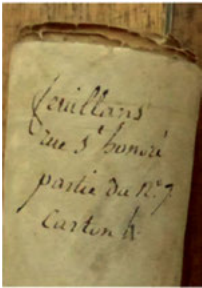 feuillans
rue St honoré
partie du No 7
Carton